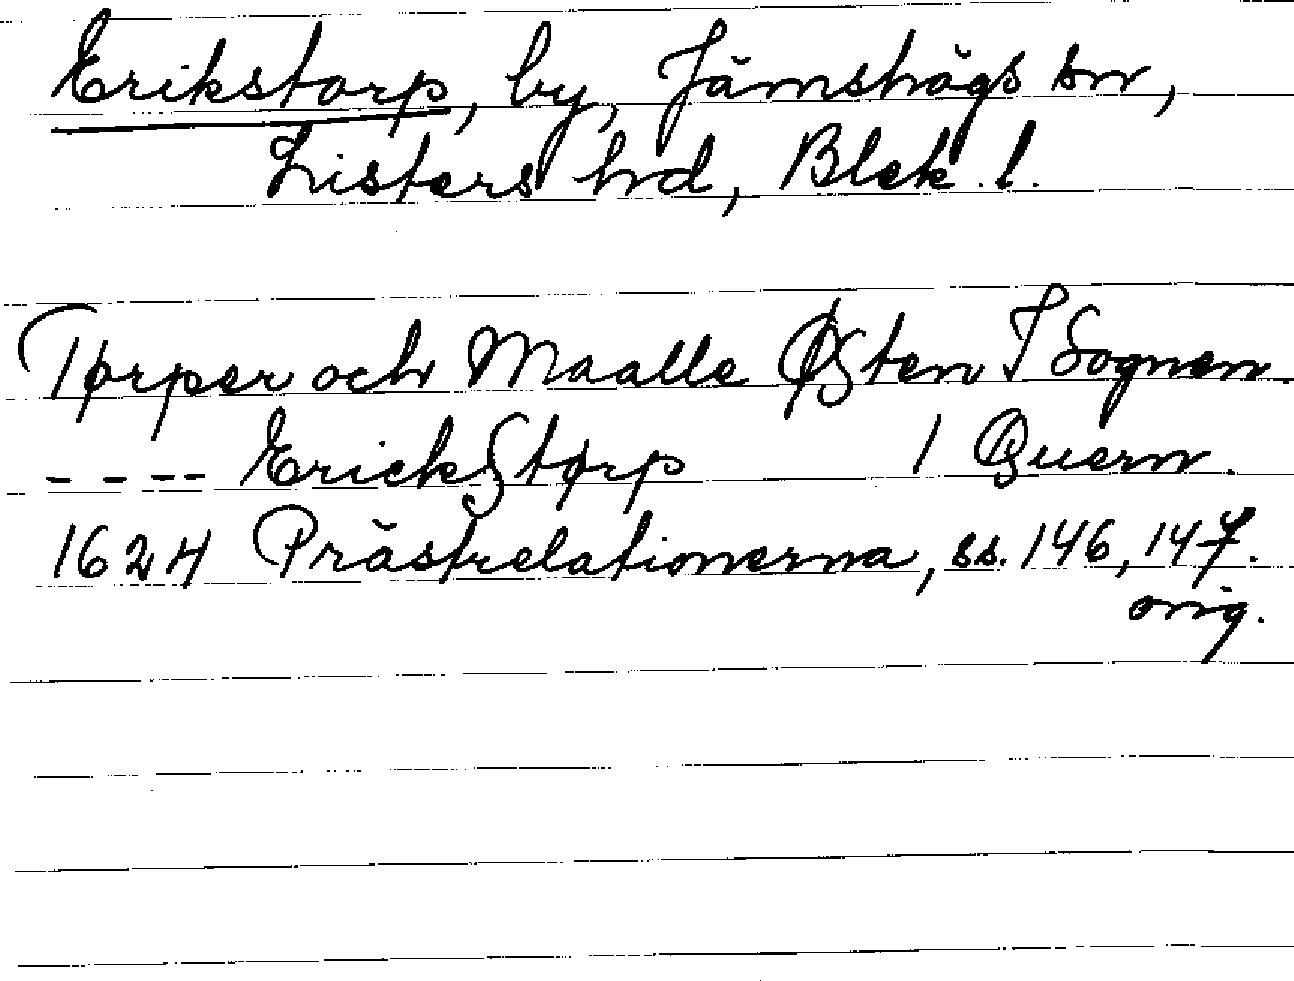 Erikstorp, by, Jämshögs sn,
Listers hd, Blek. l.
Tørper och Maalle Østen I Sognen.
- - - - Erickstørp 1 Quern.
1624 Prästrelationerna, ss. 146, 147.
orig.